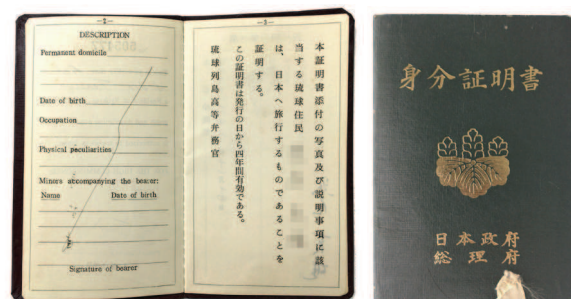 —2—
DESCRIPTION
Permanent domicile
Date of birth
Occupation
Physical peculiarities
Minors accompanying the bearer:
Name Date of birth
Signature of bearer
—3—
本証明書添付の写真及び説明事項に該
当する琉球住民
は、日本へ旅行するものであることを
証明する。
この証明書は発行の日から四年間有効である。
琉球列島高等弁務官
身分証明書
日本政府
総理府